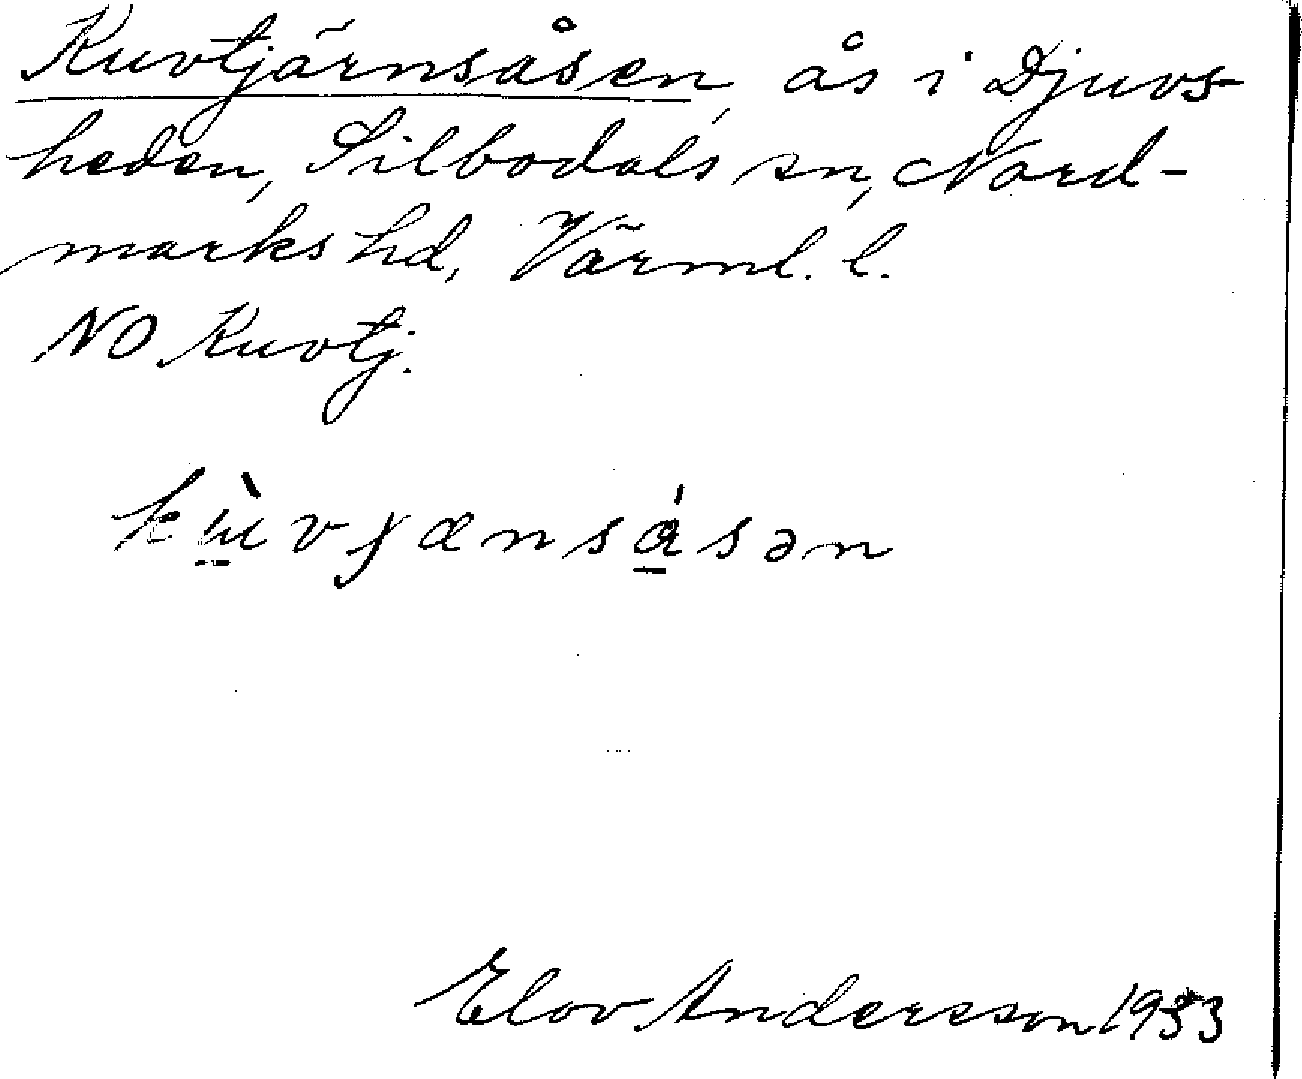 Kuvtjärnsåsen, ås i Djuvs-
heden, Silbodals sn, Nord-
marks hd, Värml. l.
NO Kuvtj.
kùvɟænsásən
Elov Andersson 1933